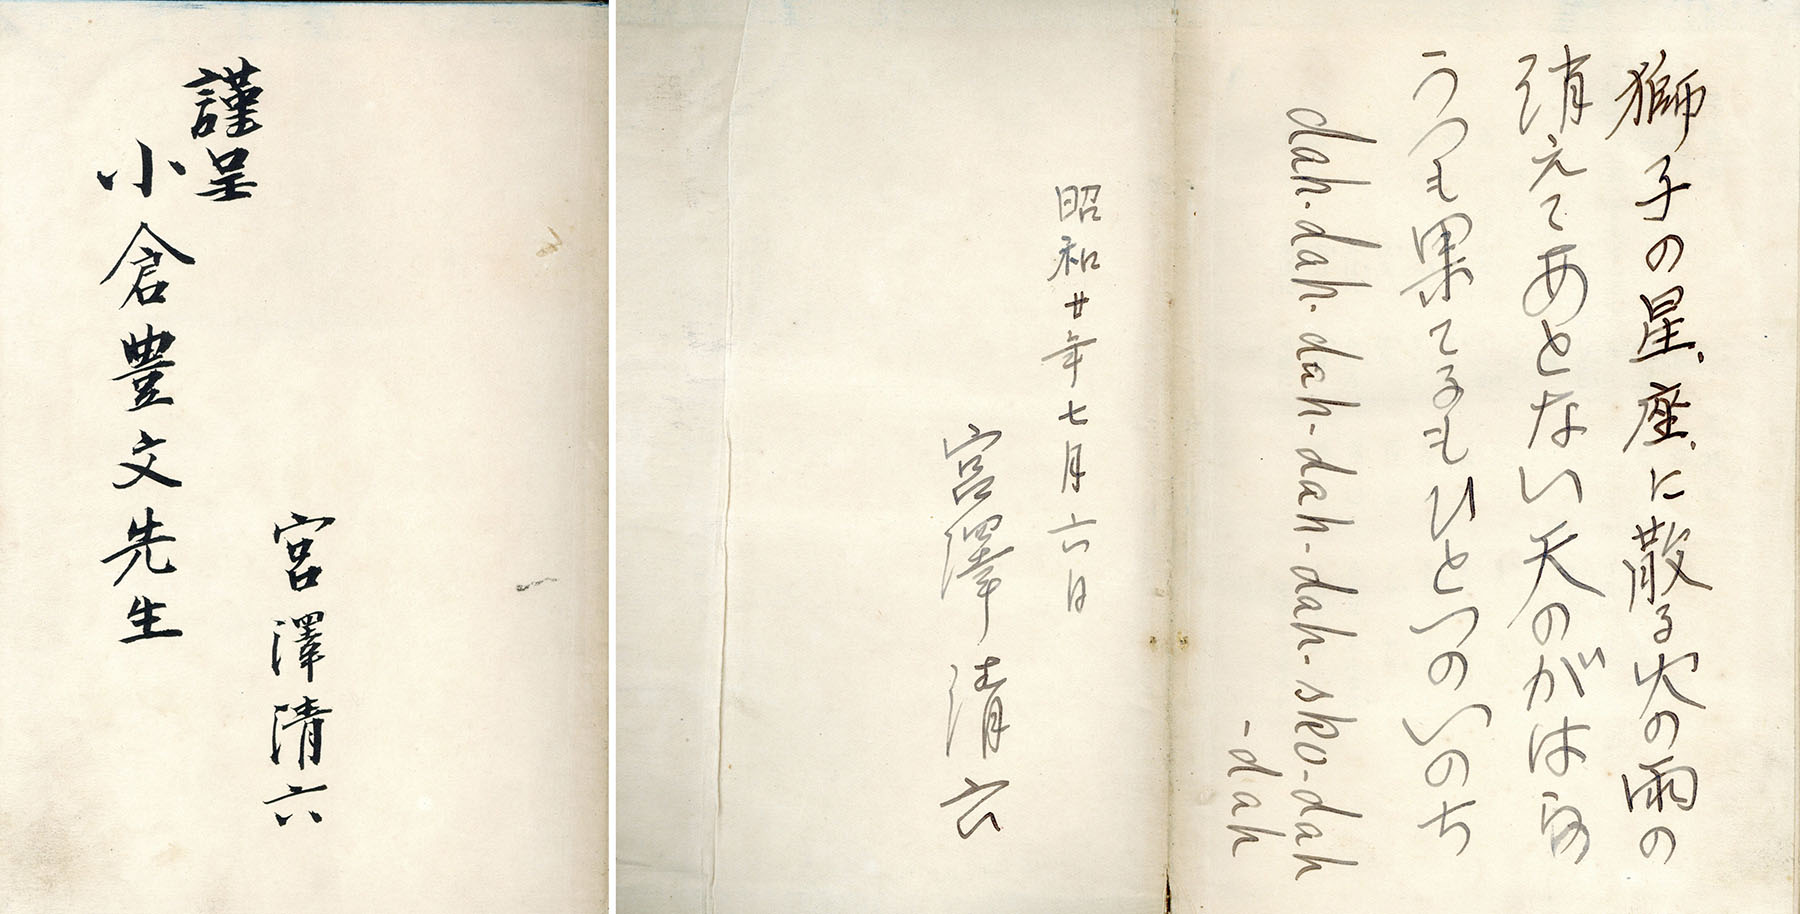 謹呈
小倉豊文先生
宮澤清六
獅子の星座に散る火の雨の
消えてあとない天のがはら
うつも果てるもひとつのいのち
dah-dah-dah-dah-dah-sko-dah
-dah
昭和廿年七月六日
宮澤清六